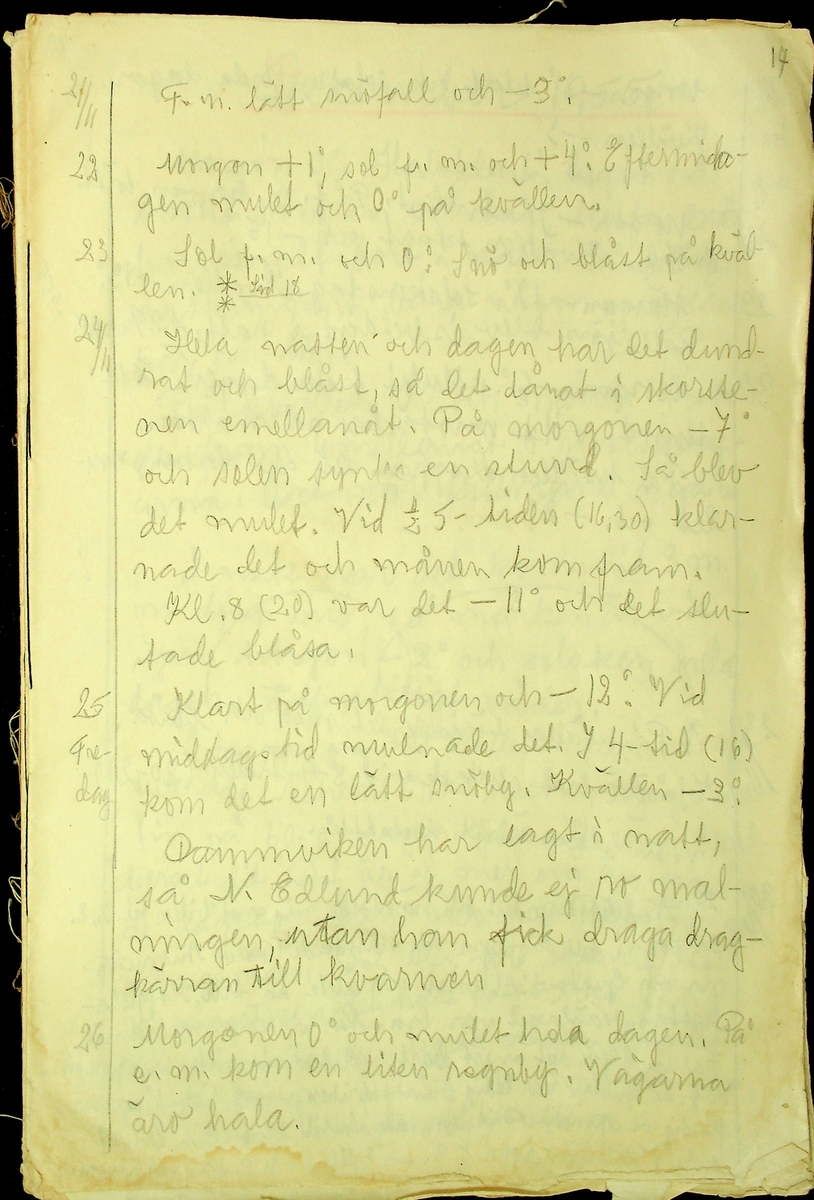 17
21/11 F.m. lätt snöfall och -3°.
22 Morgon +1°, sol f.m. och +4°. Eftermida-
gen mulet och 0° på kvällen.
23 Sol f.m. och 0°. Snö och blåst på kväl-
len. * Sid 18
*
24/11 Hela natten och dagen har det dund-
rat och blåst, så det dånat i skorste-
nen emellanåt. På morgonen -7°
och solen syntes en stund. Så blev
det mulet. Vid ½ 5-tiden (16,30) klar-
nade det och månen kom fram.
Kl. 8 (20) var det -11° och det slu-
tade blåsa.
25 Klart på morgonen och -12°. Vid
Fre- middagstid mulnade det. I 4-tid (16)
dag kom det en lätt snöby. Kvällen -3°.
Dammviken har lagt i natt,
så N. Edlund kunde ej ro mal-
ningen, utan han fick draga drag-
kärran till kvarnen
26 Morgonen 0° och mulet hela dagen. På
e.m. kom en liten regnby. Vägarna
äro hala.